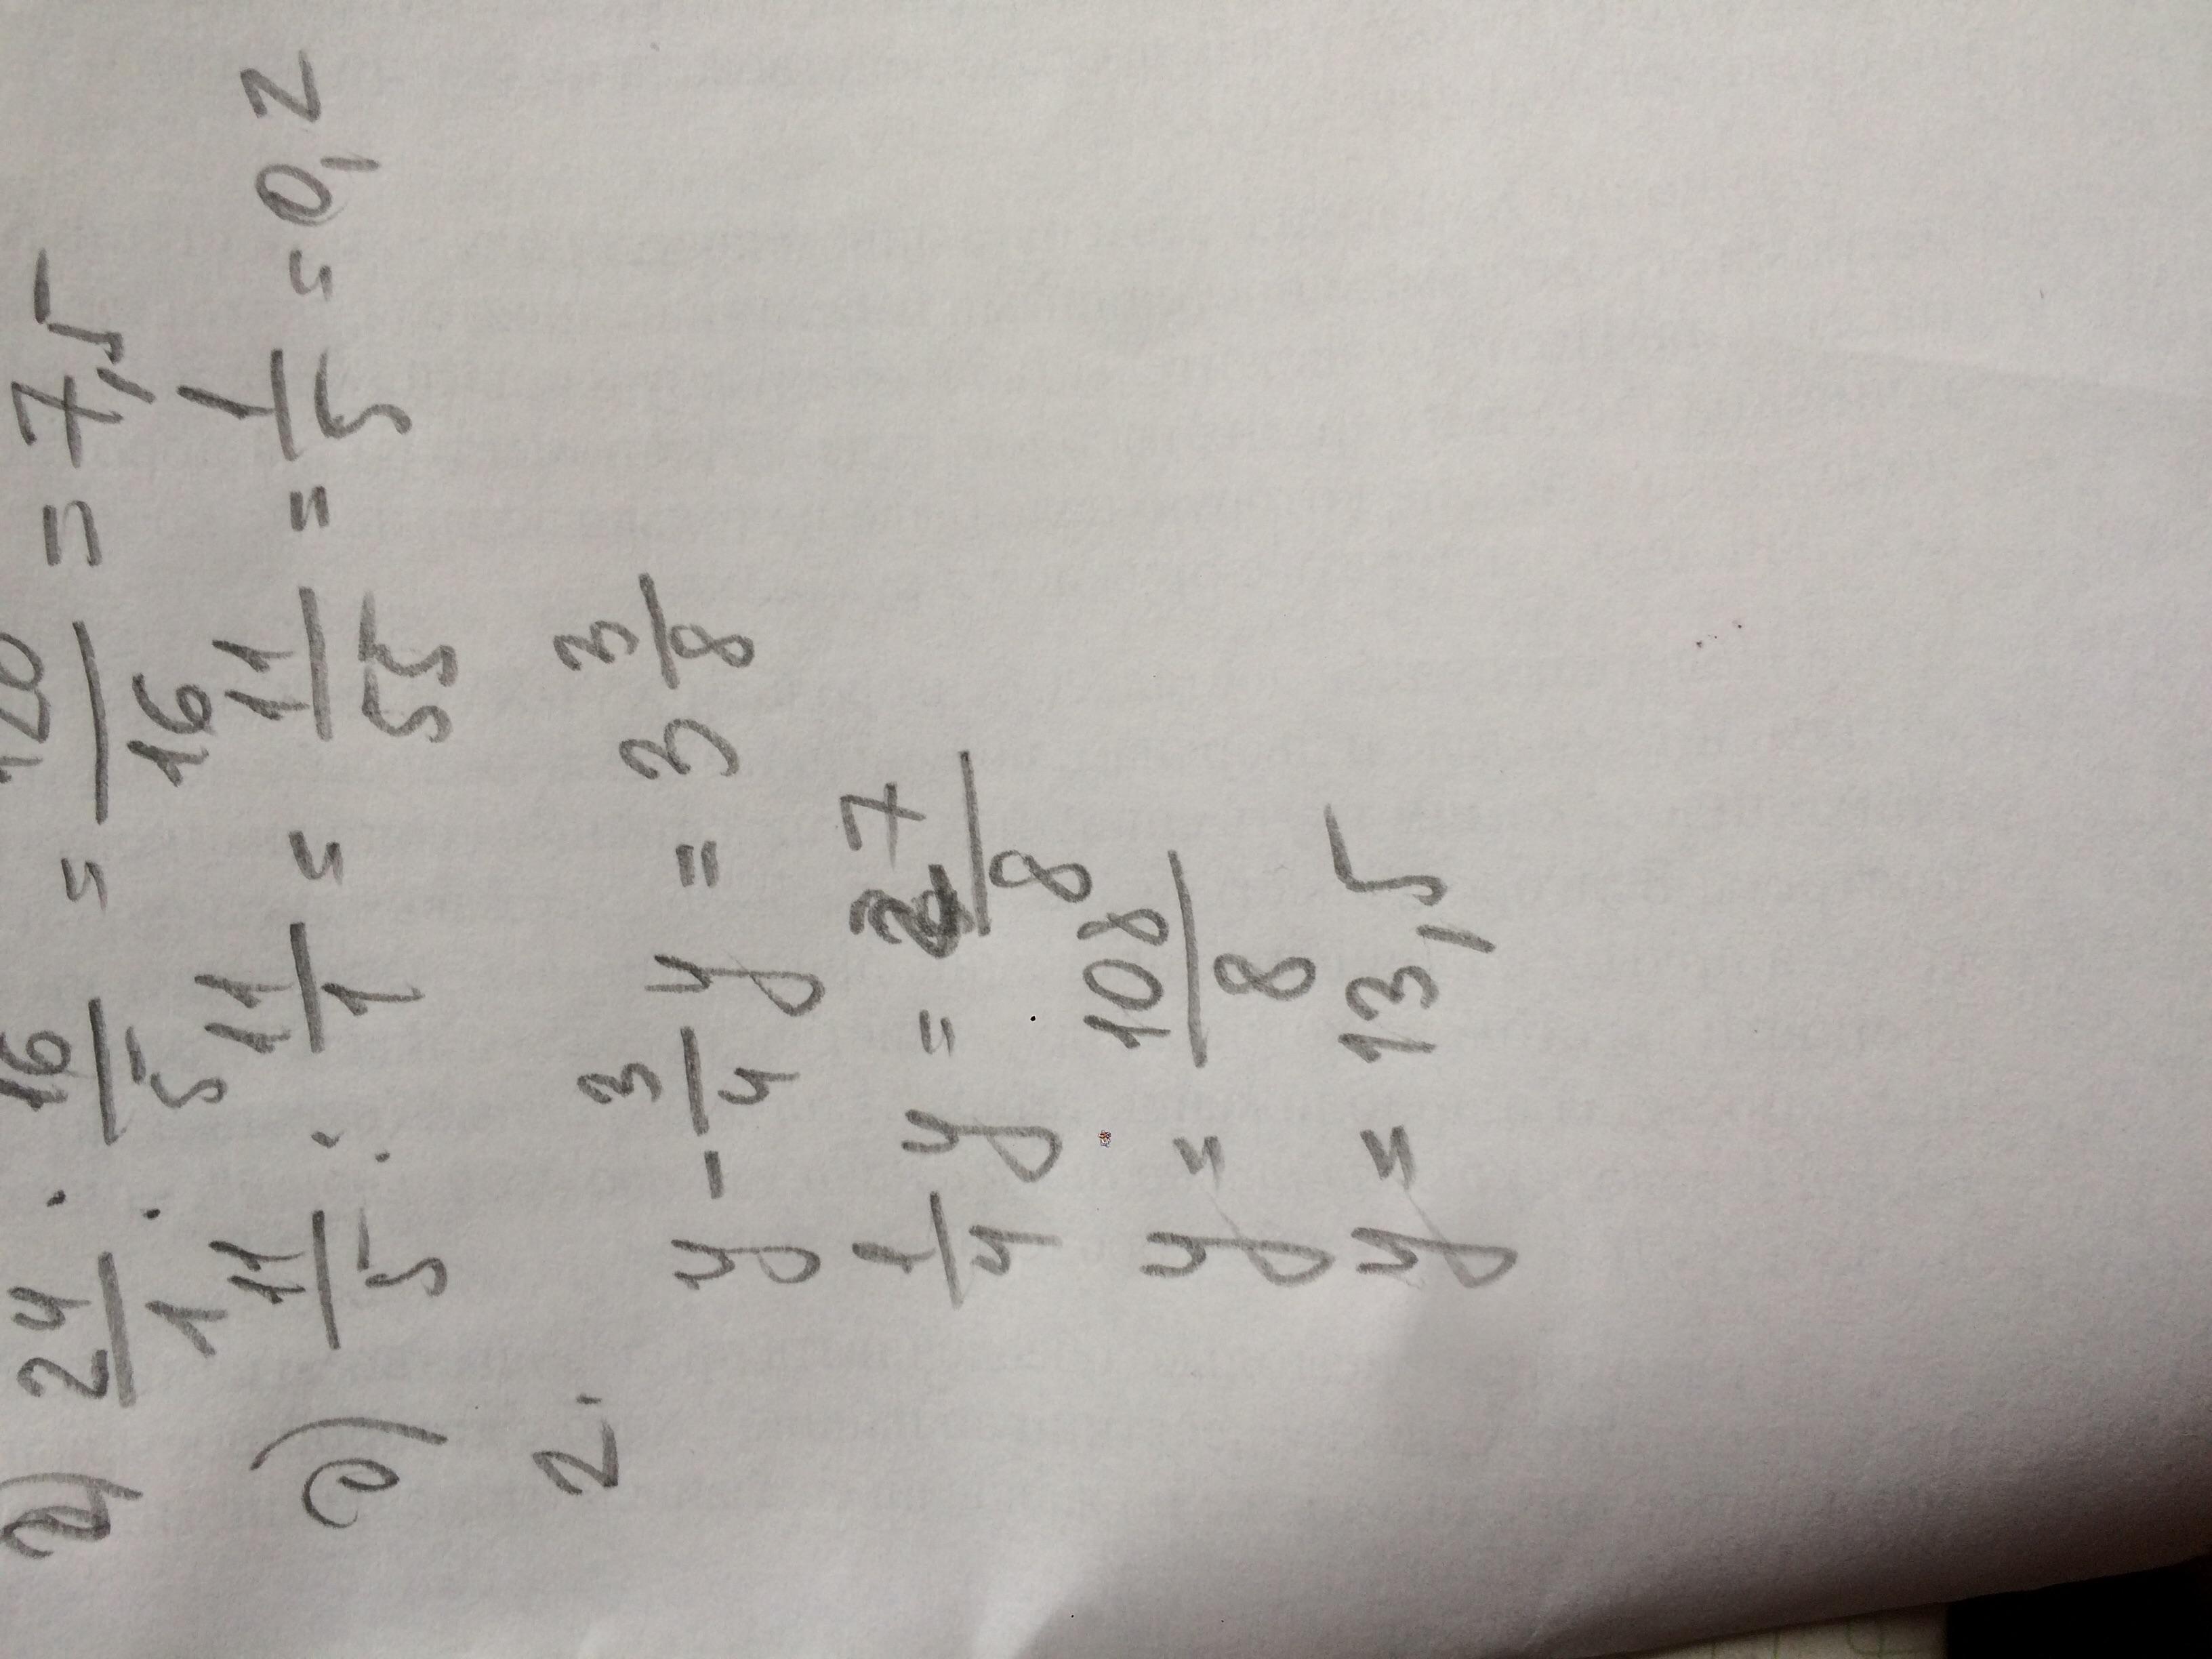 д) 24/1 : 16/5 = 120/16 = 7,5
е) 11/5 : 11/1 = 11/55 = 1/5 = 0,2
2.
y - 3/4 y = 3 3/8
1/4 y = 27/8
y = 108/8
y = 13,5